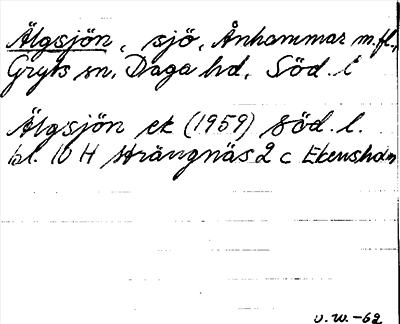 Älgsjön, sjö, Ånhammar m.fl.,
Gryts sn, Daga hd, Söd. l
Älgsjön ek (1959) Söd. l.
bl. 10 H Strängnäs 2 c Ekensholm
U.W.-62